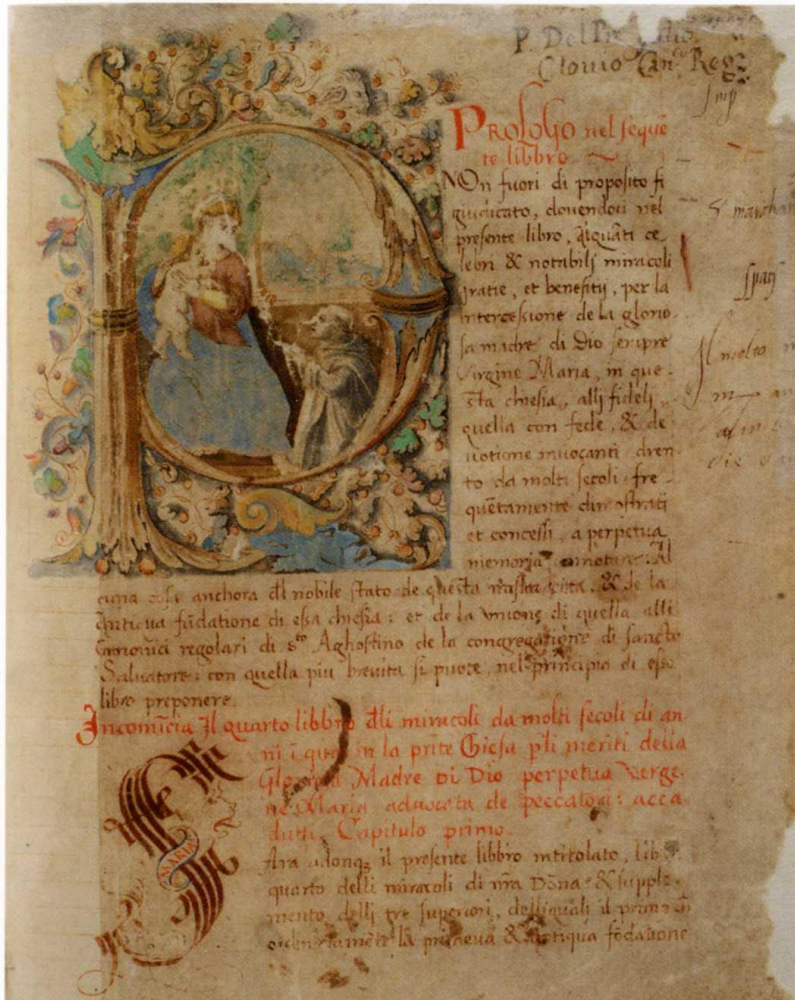 P. Del
Clovio Can. Reg.
PROLOGO nel seque
te libbro
NOn fuori di proposito fi
giudicato, dovendosi nel
presente libro, alquāti ce
lebri & notabilj miracoli
gratie, et benefitij, per la
intercessione de la glorio
sa madre di Dio sempre
Virgine Maria, in que-
sta chiesia, allj fideli
quella con fede, & de
votione invocanti dren
to da molti secoli fre-
quētamente dimostrati
et concessi, a perpetua
memoria annotare. Al
cuna cosa anchora dll nobile stato de questa & de la
antiqua fūdatione di essa chiesia: et de la unione di quella alli
Canonici regolari di sto Aghostino de la congregatione di sancto
Salvatore: con quella piu brevita si puote, nel principio di esso
libro preponere.
Incomīcia Jl quarto libbro dlli miracoli da molti secoli di an
ni ī qua in la prīte Giesa p li meriti della
Gloriosa Madre Di Dio perpetua Verge-
ne Maria advocata de peccatori: acca
dutti. Capitulo primo.
MARIA
S Ara adonqꝫ il presente libbro intitolato, libro
quarto delli miracoli di nr̄a Dōna & supple-
mento dellj tre superiori, dellj quali il primo
ordinatamēte la primeva & antiqua fōdatione
S. marchan
Il molto